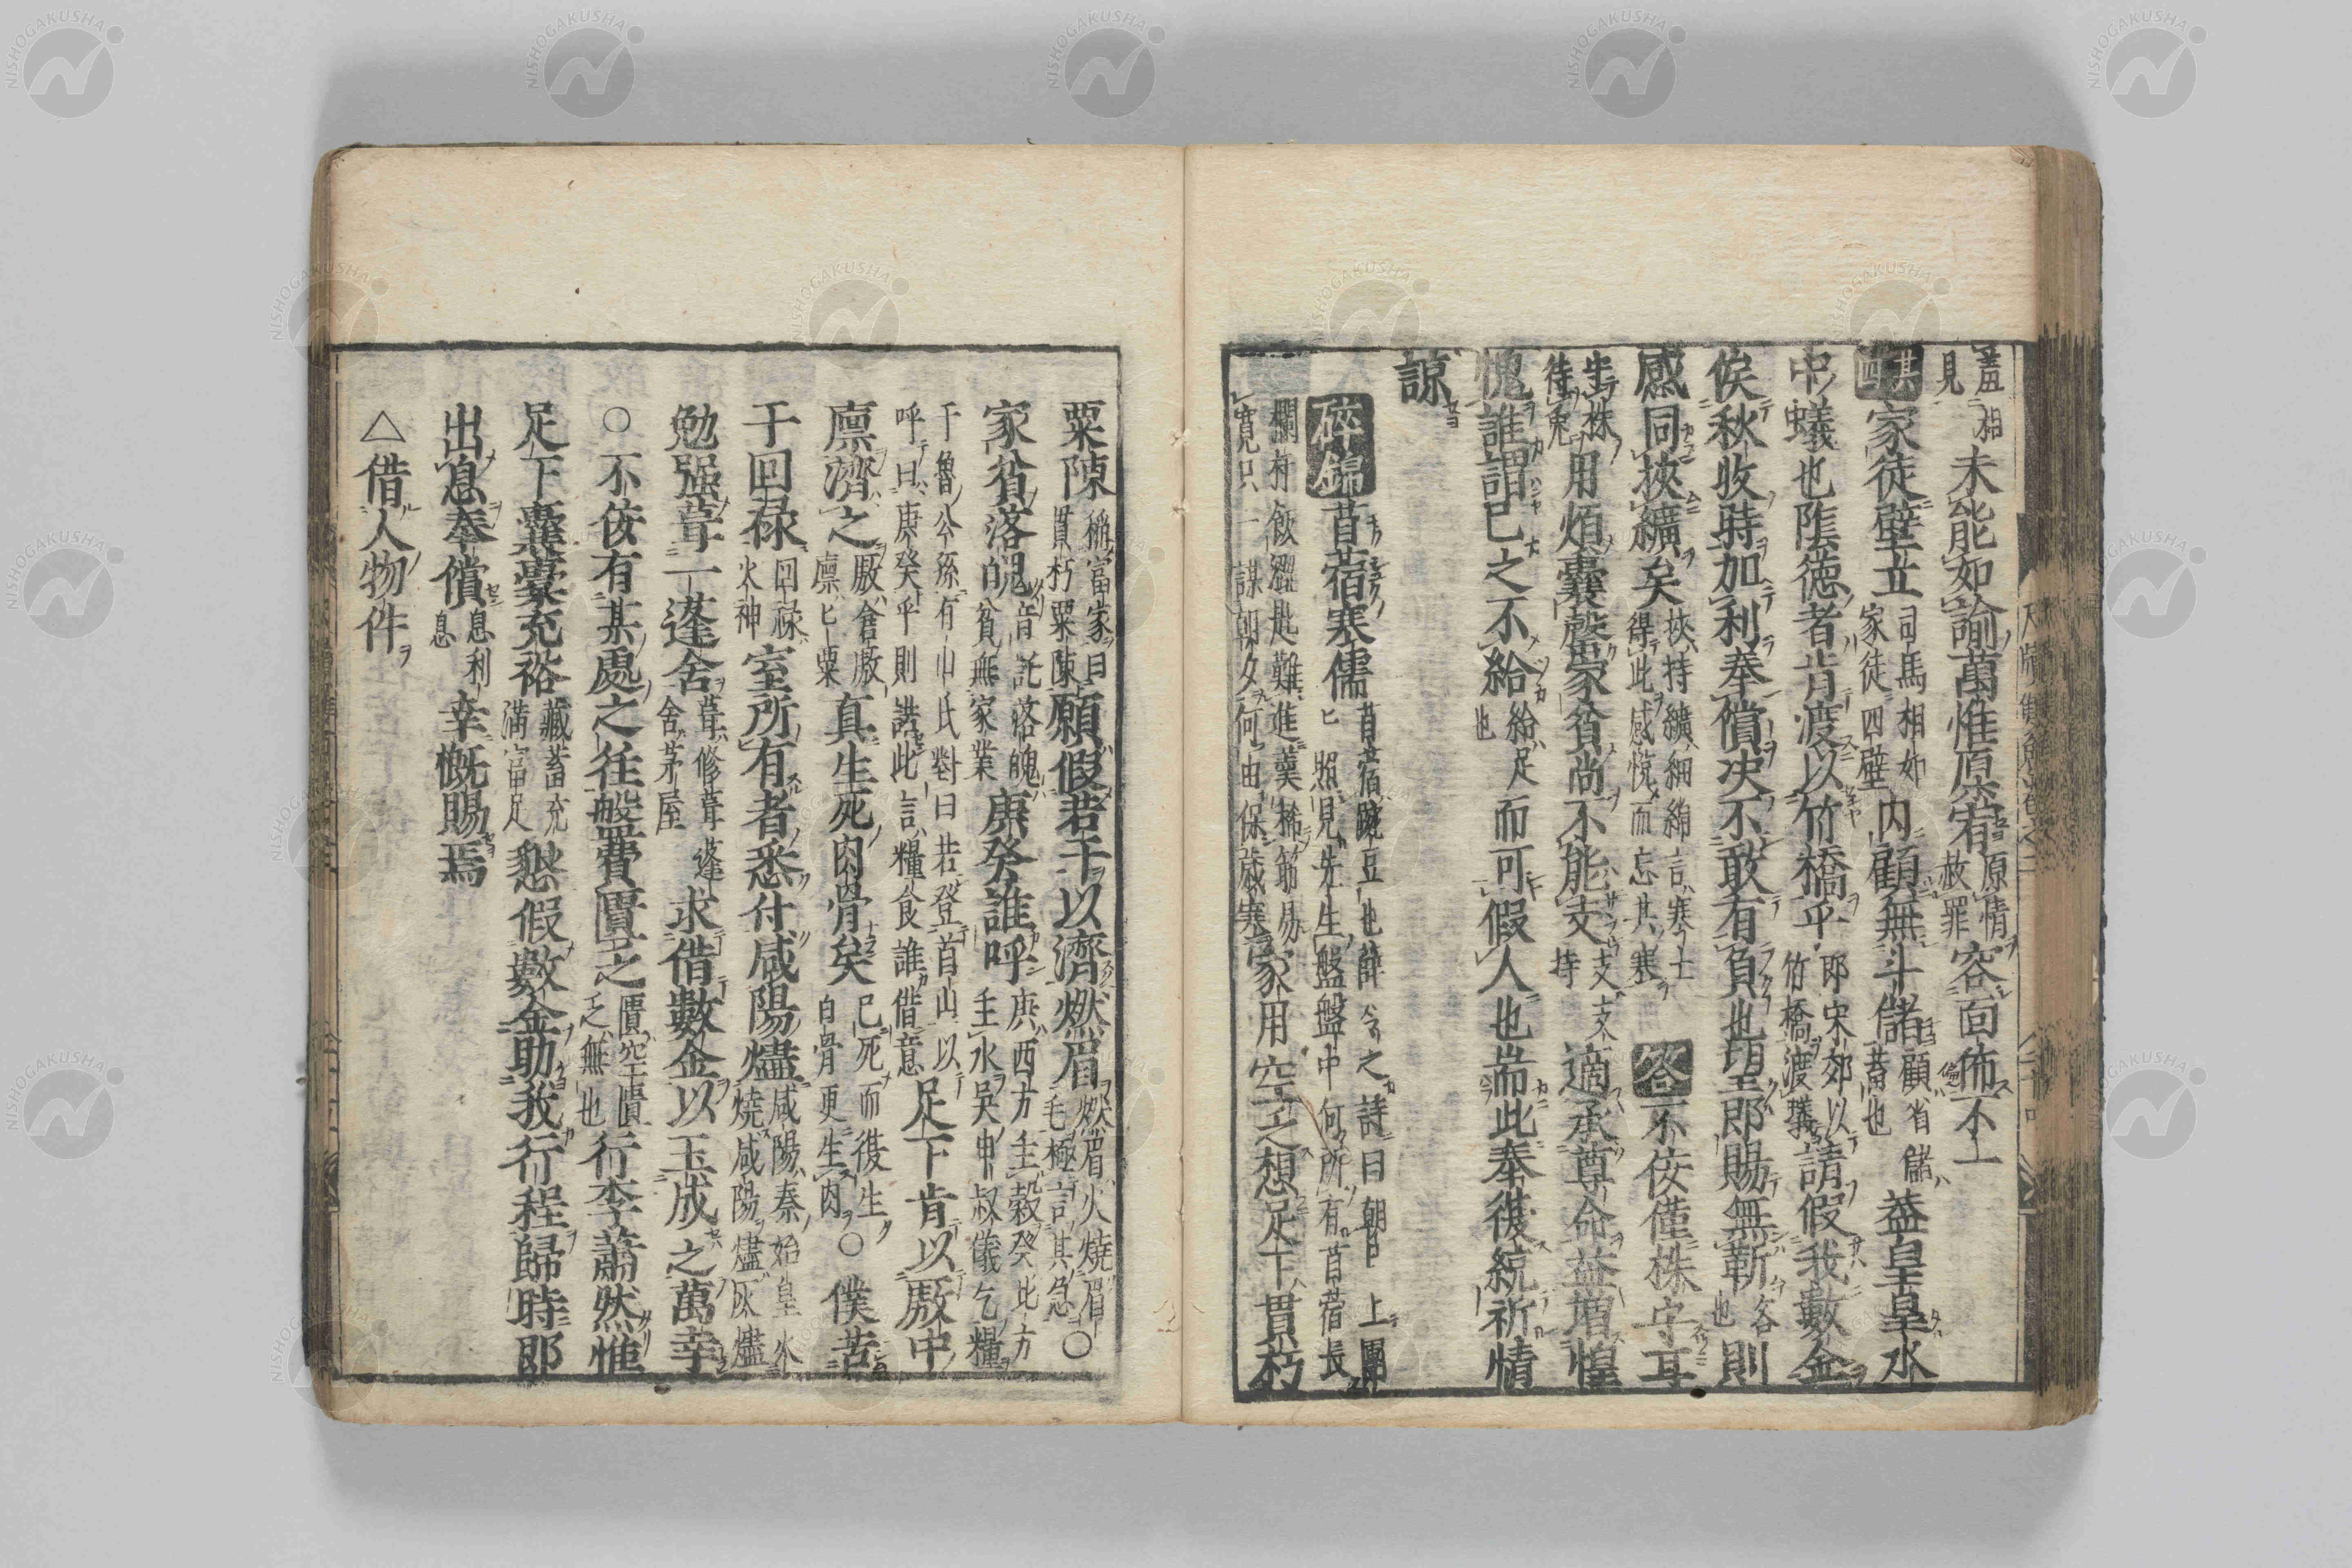 蓋相見未能如諭萬惟原宥原情赦罪容面佈不一
其四家徒壁立司馬相如家徒四壁内顧無斗儲顧省儲蓄也益皇皇水
中蟻也陰徳者肯渡以竹橋乎即宋郊以竹橋渡蟻請假我數金
俟秋收時加利奉償决不敢有負也望即賜無靳各也則
感同挾纊矣挾持纊細綿言寒士得此感悦而忘其寒答不佞僅株守耳
坐株待兎用煩囊罄家貧尚不能支支持適承尊命益增惶
愧誰謂已之不給給足也而可假人也耑此奉復統祈情
諒
碎錦苜蓿寒儒苜蓿豌豆也薛令之詩曰朝日上團匕照見先生盤盤中何所有苜蓿長
欄杆飯澀匙難進羹稀筯易寛只謀朝夕何由保歳寒家用空乏想足下貫朽
粟陳稱富家曰貫朽粟陳願假若干以濟燃眉燃眉火燒眉毛極言其急○
家貧落魄音託落魄貧無家業庚癸誰呼庚西方主穀癸北方主水呉申叔儀乞糧
于魯公孫有山氏對曰若登首山以呼曰庚癸乎則諾此言糧食誰借意足下肯以厫中
廩濟之厫倉厫廩匕粟真生死肉骨矣已死而復生白骨更生肉○僕苦
于回禄回禄火神室所有者悉付咸陽燼咸陽秦始皇火燒咸陽燼灰燼
勉强葺一蓬舍葺修葺蓬舍茅屋求借數金以玉成之萬幸
○不佞有某處之往盤費匱乏匱空匱乏無也行李蕭然惟
足下囊橐充裕藏蓄充滿富足懇假數金助我行程歸時即
出息奉償息利息幸慨賜焉
△借人物件